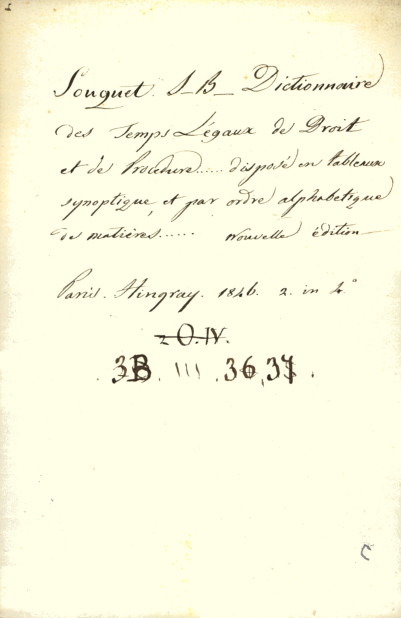 Souquet. J_B_ Dictionnaire
des Temps Légaux de Droit
et de Procédure..... disposé en tableaux
synoptique, et par ordre alphabetique
des matières...... nouvelle édition
Paris. Hingray. 1846. 2. in 4°
2 O. IV.
3B. III. 36, 37.
C